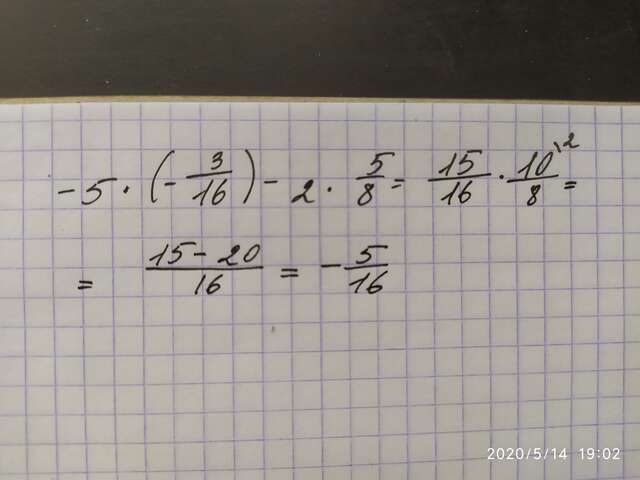 -5 · (- 3/16) - 2 · 5/8 = 15/16 · 10\2/8 =
= 15 - 20/16 = - 5/16
2020/5/14 19:02